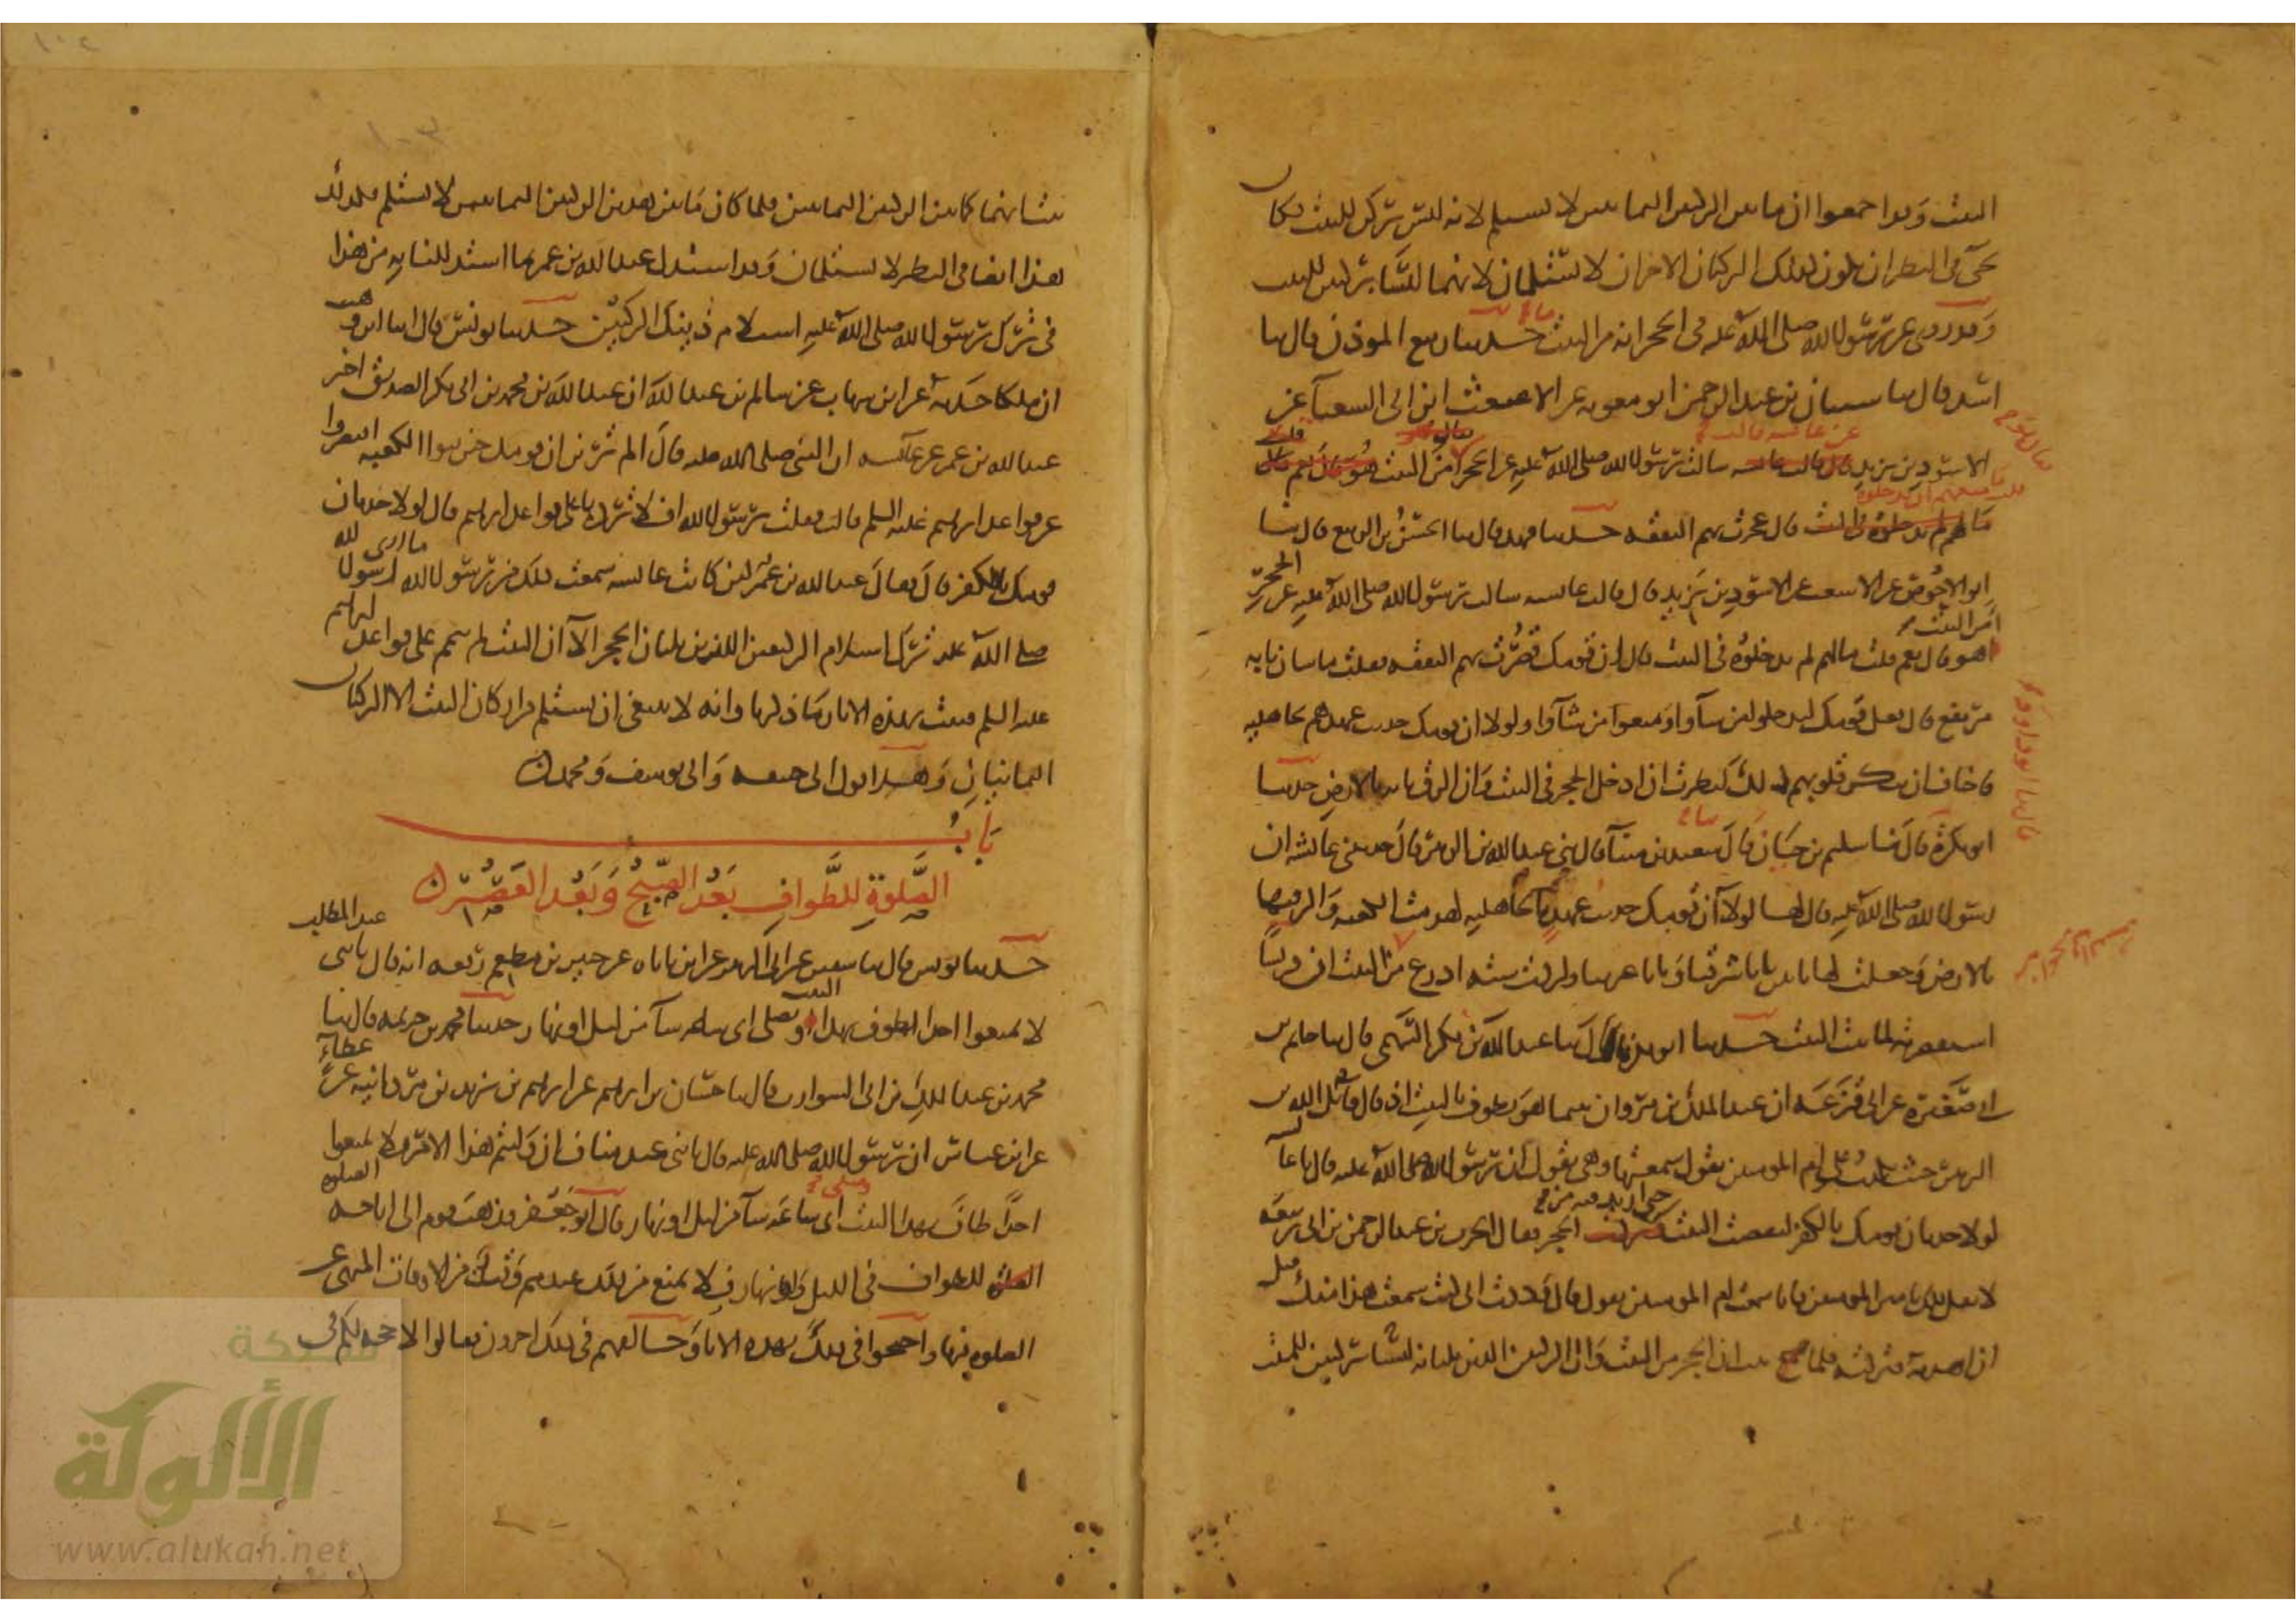 البيت وقد اجمعوا ان ما بين الركنين اليمانيين لا يستلم لانه ليس بركن للبيت فكان
يجيء في النظر ان يكون كذلك الركنان الاخران لا يستلمان لانهما ليسا بركنين للبيت
وقد روي عن رسول الله صلى الله عليه في الحجر انه من البيت حدثنا ربيع الموذن قال ثنا
اسد قال ثنا شيبان بن عبد الرحمن ابو معوية عن الاشعث ابن ابي الشعثآ عن
الاسود بن يزيد عن عائشة قالت سالت رسول الله صلى الله عليه عن الحجر امن البيت هو
قال عجزت بهم النفقه حدثنا فهد قال ثنا الحسن بن الربيع قال ثنا
ابو الاحوص عن الاشعث عن الاسود بن يزيد قال قالت عائشه سالت رسول الله صلى الله عليه عن الحجر
امن البيت هو قال نعم قلت ما لهم لم يدخلوه في البيت قال ان قومك قصرت بهم النفقه فقلت ما شان بابه
مرتفع قال فعل قومك ليدخلوا من شآوا ويمنعوا من شآوا ولولا ان قومك حديث عهدهم بجاهليه
فاخاف ان تنكر قلوبهم ذلك لنظرت ان ادخل الحجر في البيت وان الزق بابه بالارض حدثنا
ابو بكرة قال ثنا سليم بن حيان قال ثنا سعيد بن مينآ قال ثني عبد الله بن الزبير قال حدثتني عائشه ان
رسول الله صلى الله عليه قال لها لولا ان قومك حديث عهد بجاهليه لهدمت الكعبه والزقتها
بالارض وجعلت لها بابين بابا شرقيا وبابا غربيا ولزدت سته اذرع من البيت ان قريشا
استقصرته لما بنت البيت حدثنا ابو بكرة قال ثنا عبد الله بن بكر السهمي قال ثنا حاتم بن
ابي صغيرة عن ابي قزعة ان عبد الملك بن مروان بينما هو يطوف بالبيت اذ قال قاتل الله بن
الزبير حيث يكذب على ام المومنين يقول سمعتها وهي تقول ان رسول الله صلى الله عليه قال يا عائشه
لولا حدثان قومك بالكفر لنقضت البيت حتى ازيد فيه من الحجر فقال الحرث بن عبد الرحمن بن ابي ربيعة
لا تقل ذلك يا امير المومنين فانا سمعت ام المومنين تقوله قال وددت اني كنت سمعت هذا منك قبل
ان اهدمه فتركته فلما صح بهذا ان الحجر من البيت وان الركنين الذين يليانه ليسا بركنين للبيت
قال ثنا ابو داود
يشابهما كما بين الركنين اليمانيين فلما كان ما بين هذين الركنين اليمانيين لا يستلم فكذلك
هذا ايضا في النظر لا يستلمان وقد استدل عبد الله بن عمر بما استدللنا به من هذا
في ترك رسول الله صلى الله عليه استلام ذينك الركنين حدثنا يونس قال انا ابن وهب
ان ملكا حدثه عن ابن شهاب عن سالم بن عبد الله ان عبد الله بن محمد بن ابي بكر الصديق اخبر
عبد الله بن عمر عن عائشه ان النبي صلى الله عليه قال الم تري ان قومك حين بنوا الكعبه اقتصروا
عن قواعد ابراهيم عليه السلم قالت فقلت يرسول الله افلا تردها على قواعد ابراهيم قال لولا حدثان
قومك بالكفر قال فقال عبد الله بن عمر لئن كانت عائشه سمعت ذلك من رسول الله ما اري رسول الله
صلى الله عليه ترك استلام الركنين اللذين يليان الحجر الا ان البيت لم يتمم على قواعد ابراهيم
عليه السلم فثبت بهذه الاثار ما ذكرنا وانه لا ينبغي ان يستلم من اركان البيت الا الركنان
اليمانيان وهذا قول ابي حنيفه وابي يوسف ومحمد
باب
الصلوة للطواف بعد الصبح وبعد العصر
حدثنا يونس قال ثنا سفين عن ابي الزبير عن ابن باباه عن جبير بن مطعم رفعه انه قال يا بني عبد المطلب
لا تمنعوا احدا يطوف بهذا البيت ويصلي اي ساعه شآ من ليل او نهار حدثنا محمد بن خزيمة قال ثنا
محمد بن عبد الملك بن ابي الشوارب قال ثنا حسان بن ابراهيم عن ابراهيم بن يزيد بن مردانبه عن عطاء
عن ابن عباس ان رسول الله صلى الله عليه قال يا بني عبد مناف ان وليتم هذا الامر فلا تمنعوا
احدا طاف بهذا البيت وصلى اي ساعة شآ من ليل او نهار قال ابو جعفر فذهب قوم الى اباحه الصلوه
للطواف في الليل والنهار فلا يمنع من ذلك عندهم وقت من الاوقات المنهي عن
الصلوه فيها واحتجوا في ذلك بهذه الاثار وخالفهم في ذلك اخرون فقالوا لا حجه لكم في
شبكة
الألوكة
www.alukah.net